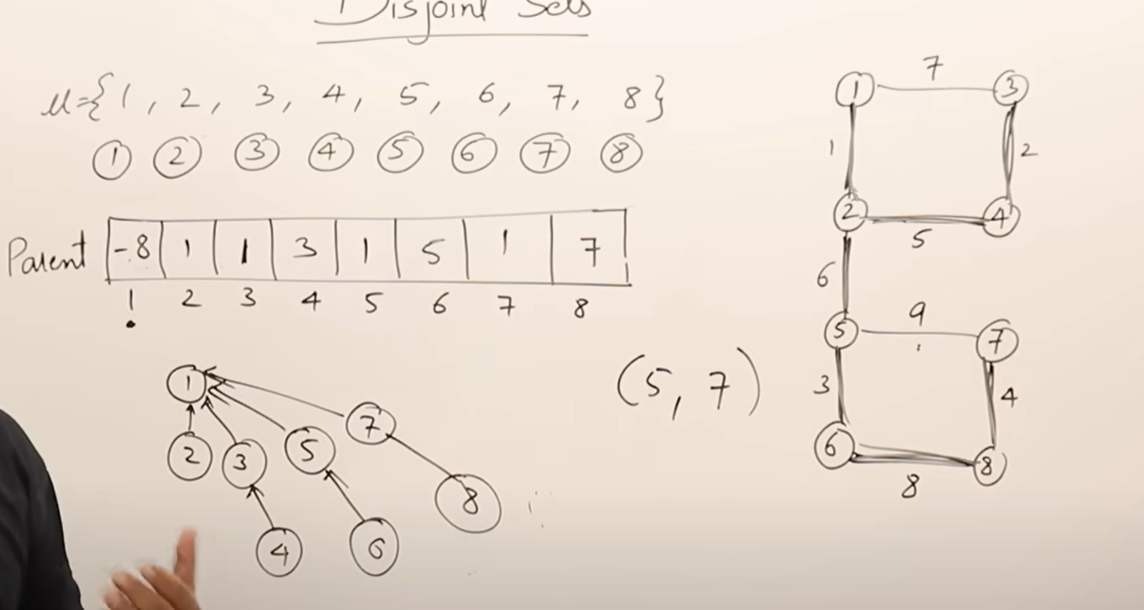 Disjoint Sets
U={1, 2, 3, 4, 5, 6, 7, 8}
1 2 3 4 5 6 7 8
Parent -8 1 1 3 1 5 1 7
1 2 3 4 5 6 7 8
1
2 3 5 7
4 6 8
(5, 7)
1 7 3
1 2
2 5 4
6
5 9 7
3 4
6 8
8